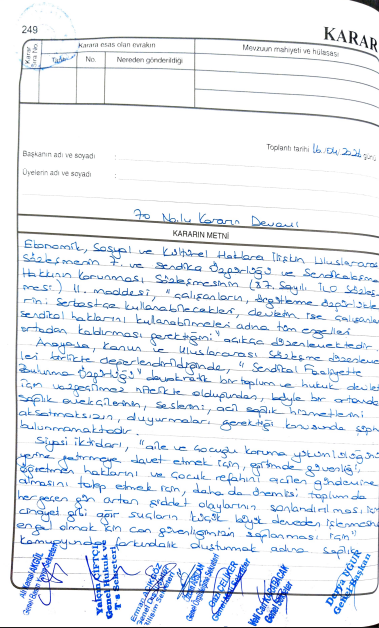 249
KARAR
Karar sıra No.
Karara esas olan evrakın
Mevzuun mahiyeti ve hülâsası
Tarihi
No.
Nereden gönderildiği
Toplantı tarihi 16.04.2026 günü
Başkanın adı ve soyadı :
Üyelerin adı ve soyadı :
70 Nolu Kararın Devamı
KARARIN METNİ
Ekonomik, Sosyal ve Kültürel Haklara İlişkin Uluslararası
Sözleşmenin 7. ve Sendika Özgürlüğü ve Sendikalaşma
Hakkının Korunması Sözleşmesinin (87. Sayılı ILO Sözleş-
mesi) 11. maddesi, "çalışanların, örgütlenme özgürlükle-
rini serbestçe kullanabilecekleri, devletin ise çalışanların
sendikal haklarını kullanabilmeleri adına tüm engelleri
ortadan kaldırması gerektiğini" açıkça düzenlemektedir.
Anayasa, Kanun ve Uluslararası Sözleşme düzenleme-
leri birlikte değerlendirildiğinde, "Sendikal Faaliyette
Bulunma Özgürlüğü" demokratik bir toplum ve hukuk devleti
için vazgeçilmez nitelikte olduğundan, böyle bir ortamda
sağlık emekçilerinin, seslerini, acil sağlık hizmetlerini
aksatmaksızın, duyurmaları gerektiği konusunda şüphe
bulunmamaktadır.
Siyasi iktidarı, "aile ve çocuğu koruma yükümlülüğünü
yerine getirmeye davet etmek için, eğitimde güvenliği,
öğretmen haklarını ve çocuk refahını acilen gündemine
almasını talep etmek için, daha da önemlisi toplumda
her geçen gün artan şiddet olaylarının sonlandırılması için
cinayet gibi ağır suçların küçük büyük demeden işlenmesine
engel olmak için can güvenliğimizin sağlanması için"
kamuoyunda farkındalık oluşturmak adına sağlık
Ali Kemal
Yalçın ÇİFTÇİ
Genel Hukuk ve
Sekreteri
Derya UĞUR
Genel Başkan